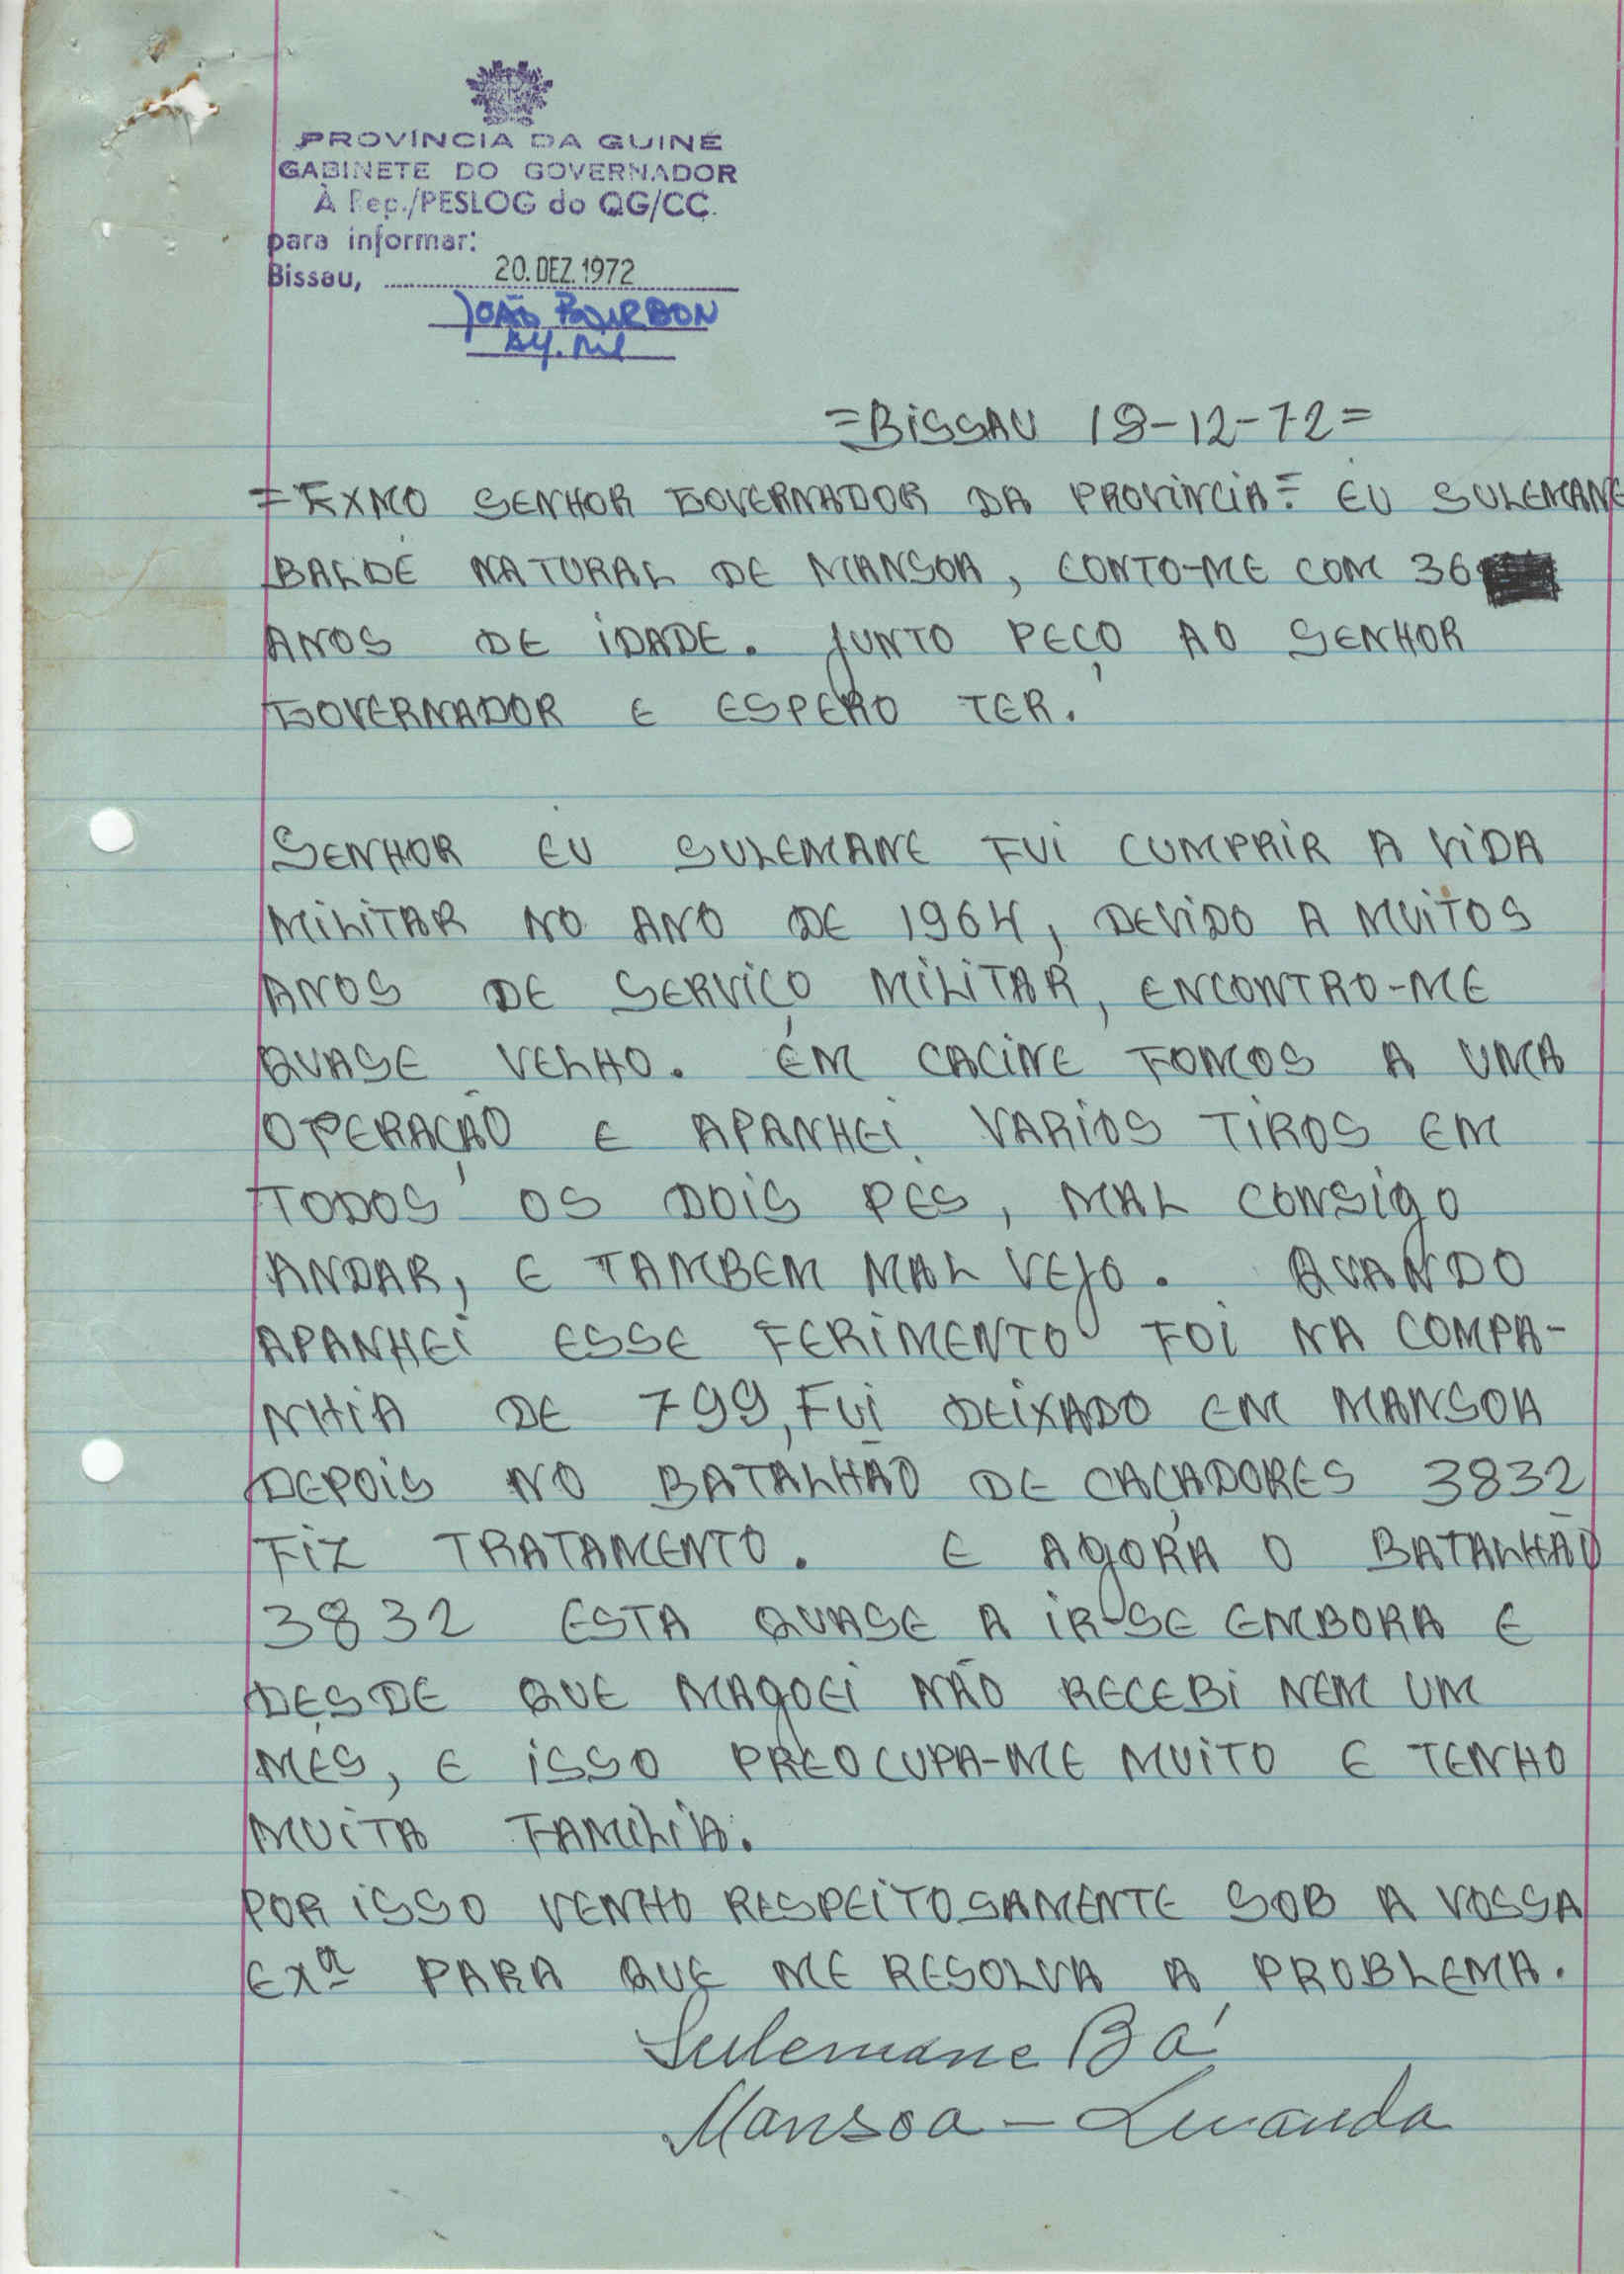 PROVÍNCIA DA GUINÉ
GABINETE DO GOVERNADOR
À Rep./PESLOG do QG/CC.
para informar:
Bissau, 20. DEZ. 1972
JOÃO BOURBON
=BISSAU 18-12-72=
=EXMO SENHOR GOVERNADOR DA PROVINCIA= EU SULEMANE
BALDÉ NATURAL DE MANSOA, CONTO-ME COM 36
ANOS DE IDADE. JUNTO PEÇO AO SENHOR
GOVERNADOR E ESPERO TER.
SENHOR EU SULEMANE FUI CUMPRIR A VIDA
MILITAR NO ANO DE 1964, DEVIDO A MUITOS
ANOS DE SERVIÇO MILITAR, ENCONTRO-ME
QUASE VELHO. EM CACINE FOMOS A UMA
OPERAÇÃO E APANHEI VARIOS TIROS EM
TODOS OS DOIS PES, MAL CONSIGO
ANDAR, E TAMBEM MAL VEJO. QUANDO
APANHEI ESSE FERIMENTO FOI NA COMPA-
NHIA DE 799, FUI DEIXADO EM MANSOA
DEPOIS NO BATALHÃO DE CAÇADORES 3832
FIZ TRATAMENTO. E AGORA O BATALHÃO
3832 ESTA QUASE A IR-SE EMBORA E
DESDE QUE MAGOEI NÃO RECEBI NEM UM
MÊS, E ISSO PREOCUPA-ME MUITO E TENHO
MUITA FAMILIA.
POR ISSO VENHO RESPEITOSAMENTE SOB A VOSSA
EXª PARA QUE ME RESOLVA A PROBLEMA.
Sulemane Bá
Mansoa - Luanda